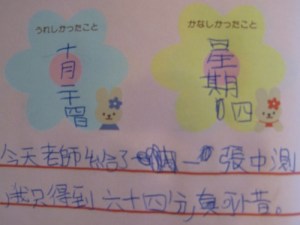 うれしかったこと
かなしかったこと
十月二十四日
星期四
今天老師給了一張中測
我只得到六十四分,真